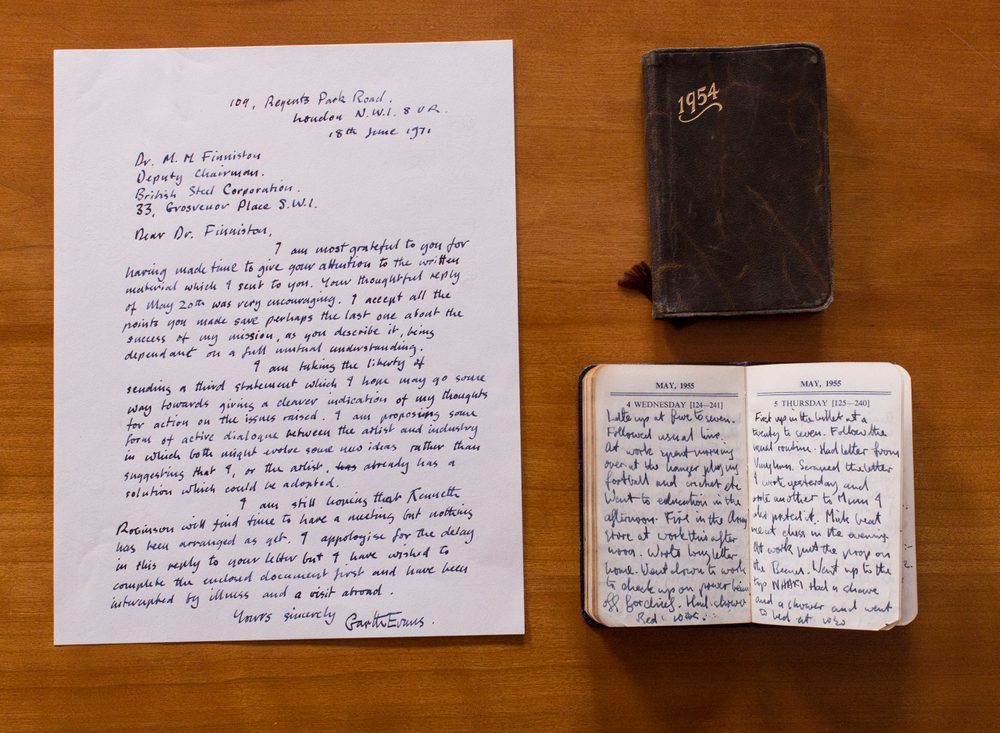 109, Regents Park Road.
London N.W.1. 8 U R.
18th June 1971
Dr. M. M Finniston
Deputy Chairman.
British Steel Corporation.
33, Grosvenor Place S.W.1.
Dear Dr. Finniston,
I am most grateful to you for
having made time to give your attention to the written
material which I sent to you. Your thoughtful reply
of May 20th was very encouraging. I accept all the
points you made save perhaps the last one about the
success of my mission, as you describe it, being
dependant on a full mutual understanding.
I am taking the liberty of
sending a third statement which I hope may go some
way towards giving a clearer indication of my thoughts
for action on the issues raised. I am proposing some
form of active dialogue between the artist and industry
in which both might evolve some new ideas rather than
suggesting that I, or the artist, has already has a
solution which could be adopted.
I am still hoping that Kenneth
Robinson will find time to have a meeting but nothing
has been arranged as yet. I appologise for the delay
in this reply to your letter but I have wished to
complete the enclosed document first and have been
interrupted by illness and a visit abroad.
Yours sincerely Garth Evans.
1954
MAY, 1955
4 WEDNESDAY [124—241]
Late up at five to seven.
Followed usual line.
At work spent morning
over at the hanger playing
football and cricket etc
Went to education in the
afternoon. First in the
store at work this after
noon. Wrote long letter
home. Went down to work
to check up on power being
off for chief. Had shower
Bed:
MAY, 1955
5 THURSDAY [125—240]
First up in the billet at
twenty to seven. Follow the
usual routine. Had letter from
Scanned the letter
I wrote yesterday and
wrote another to Mum &
also posted it. Mick beat
me at chess in the evening.
At work put the prop on
the Went up to the
top NAAFI Had a shave
and a shower and went
to bed at 10.20